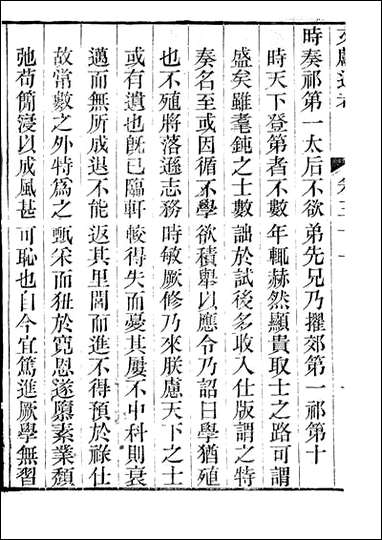 時奏祁第一太后不欲弟先兄乃擢郊第一祁第十
時天下登第者不數年輒赫然顯貴取士之路可謂
盛矣雖耄鈍之士數詘於試後多收入仕版謂之特
奏名至或因循不學欲積舉以應令乃詔曰學猶殖
也不殖將落遜志務時敏厥修乃來朕慮天下之士
或有遺也旣已臨軒較得失而憂其屢不中科則衰
邁而無所成退不能返其里閭而進不得預於祿仕
故常數之外特爲之甄采而狃於寛恩遂隳素業頹
弛苟簡寖以成風甚可恥也自今宜篤進厥學無習